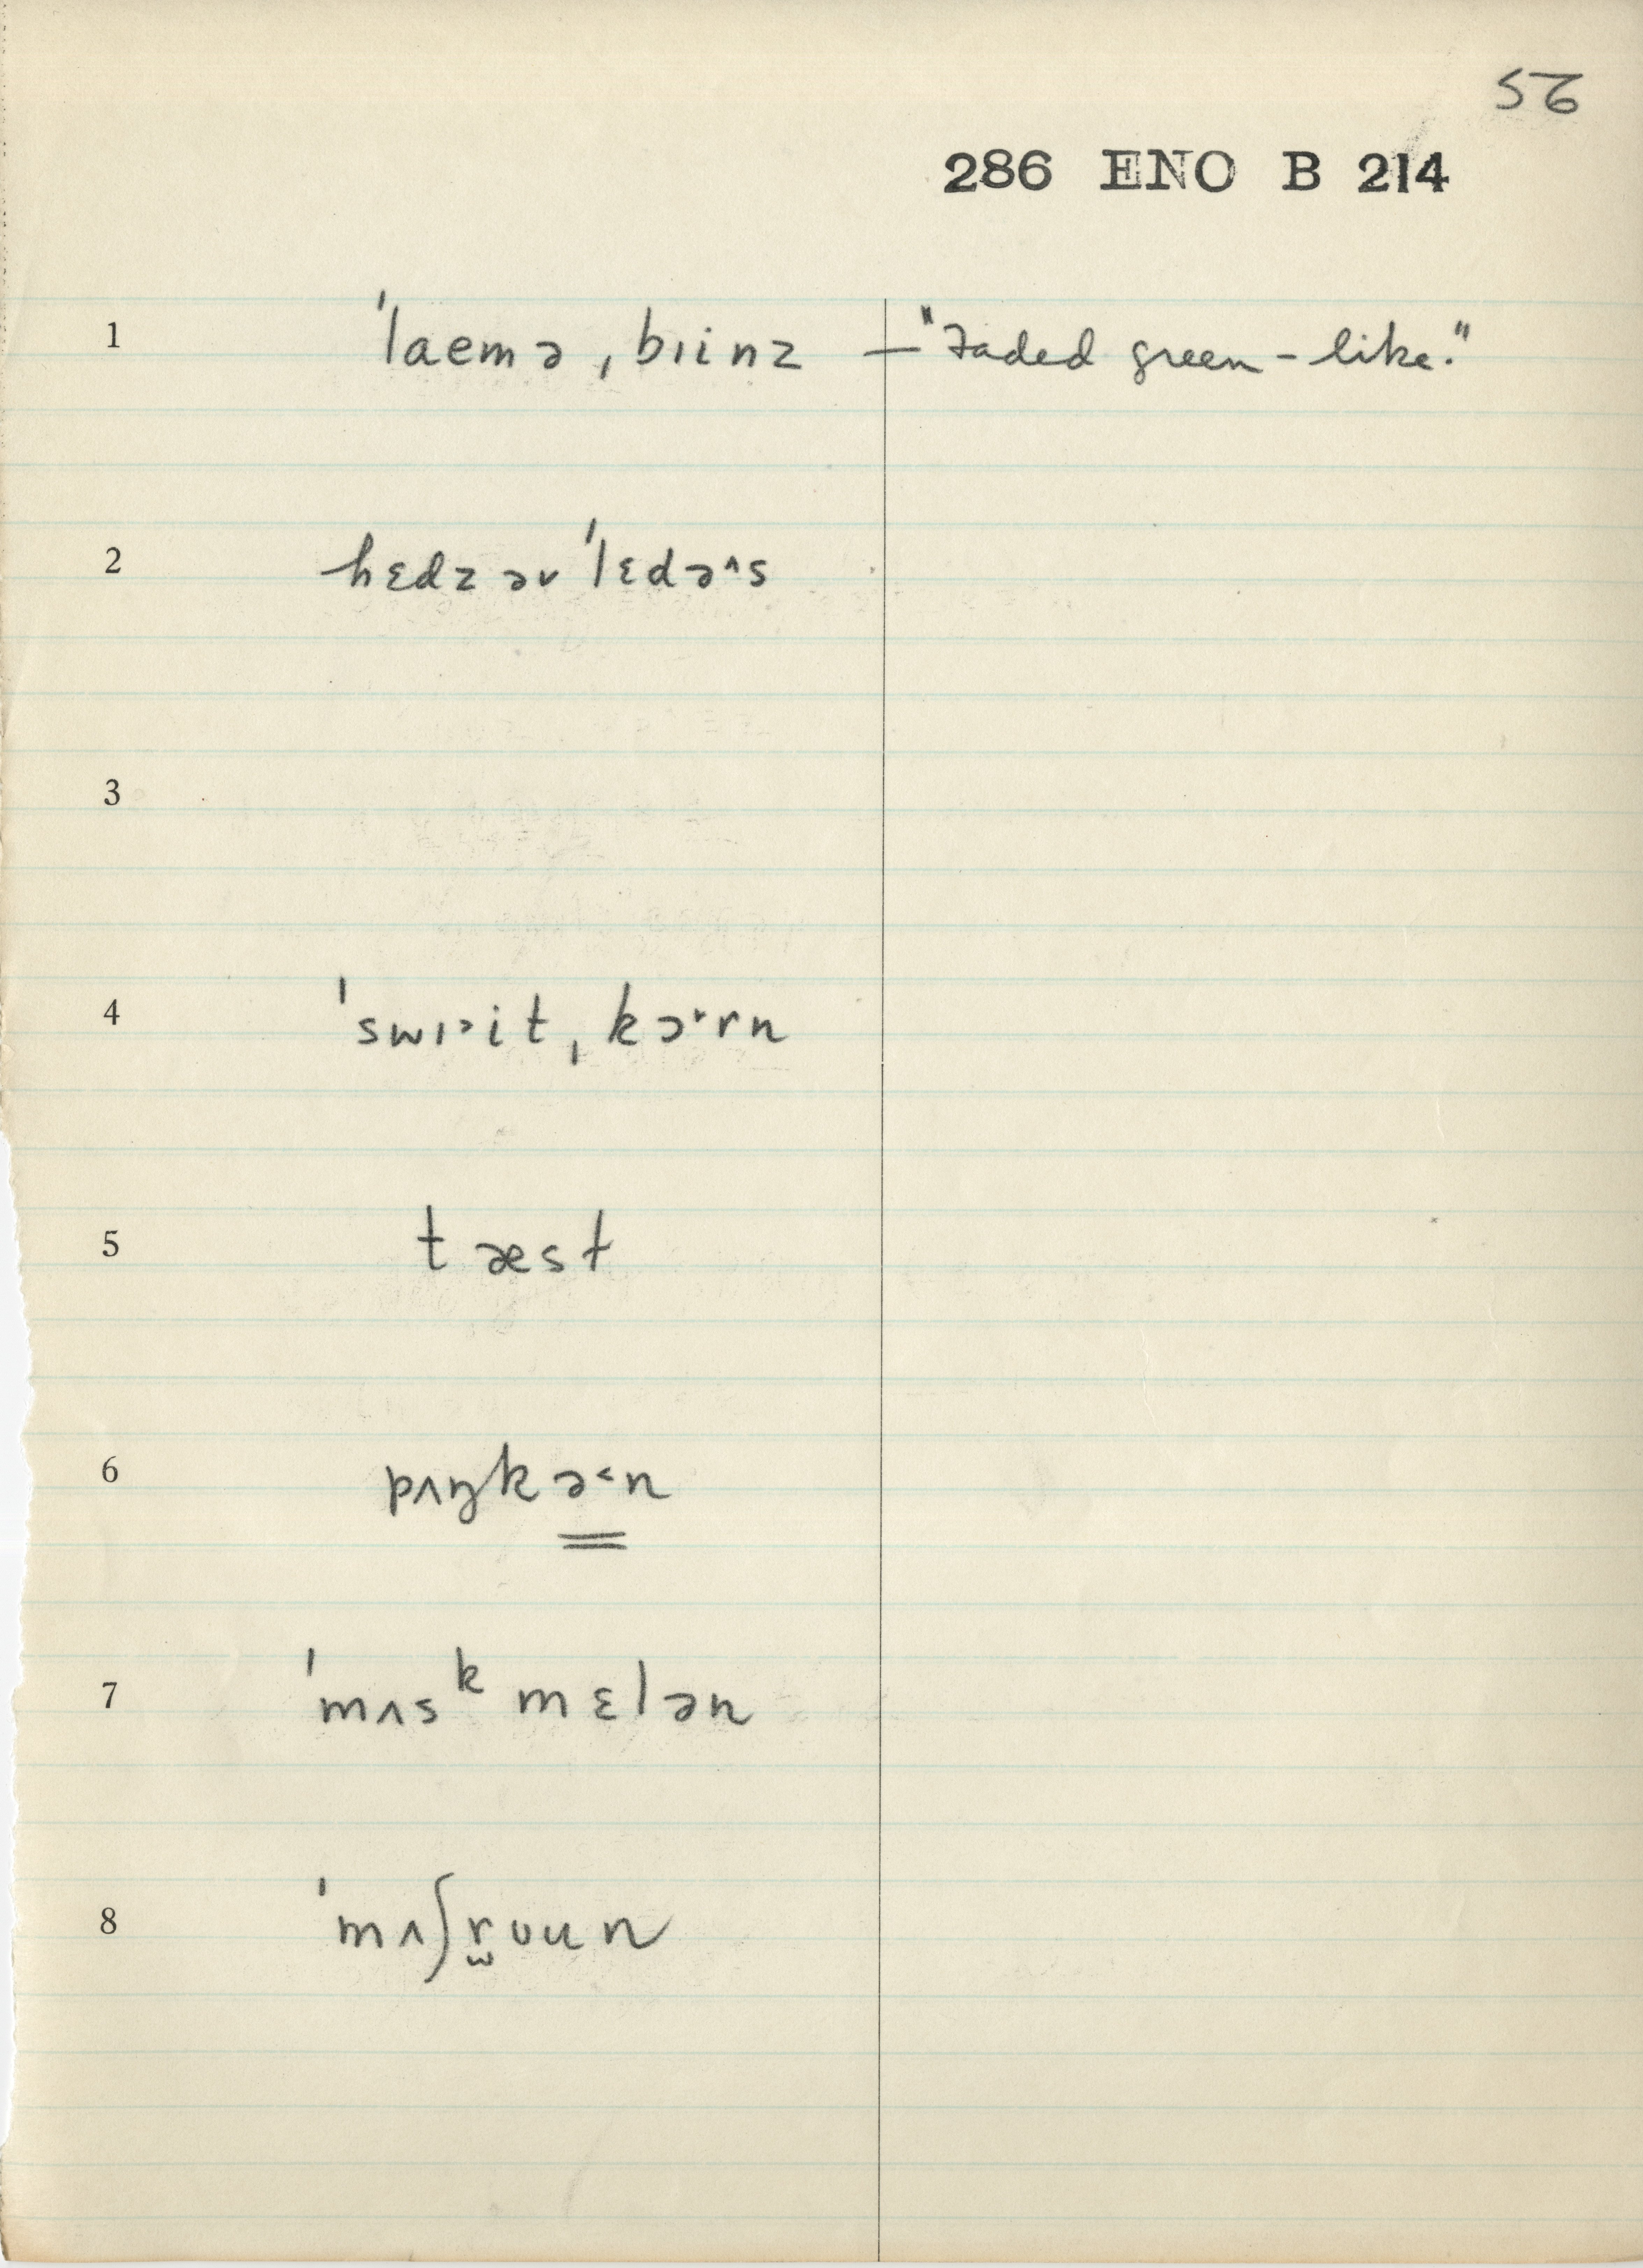 56
286 ENO B 214
1 ˈlaemə ˌbɪinz — "Faded green-like."
2 hɛdz əv ˈlɛdə˄s
3
4 ˈswɪ˃it ˌkɔ˞rn
5 tæst
6 pʌŋkə˂n
7 ˈmʌsᵏmɛlən
8 ˈmʌʃr̫ʊun